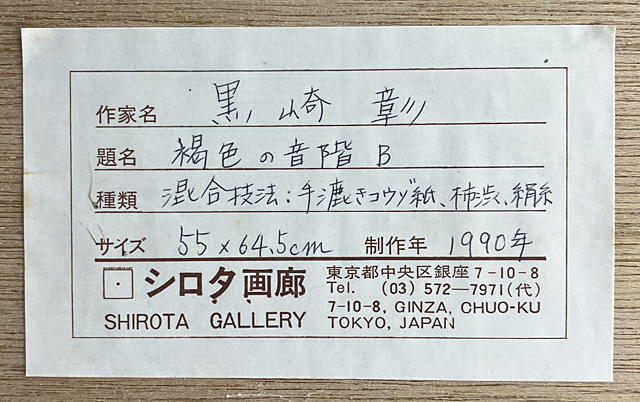 作家名 黒崎 彰
題名 褐色の音階 B
種類 混合技法:手漉きコウゾ紙、柿渋、絹糸
サイズ 55×64.5cm 制作年 1990年
シロタ画廊
SHIROTA GALLERY
東京都中央区銀座7-10-8
Tel. (03) 572-7971(代)
7-10-8, GINZA, CHUO-KU
TOKYO, JAPAN